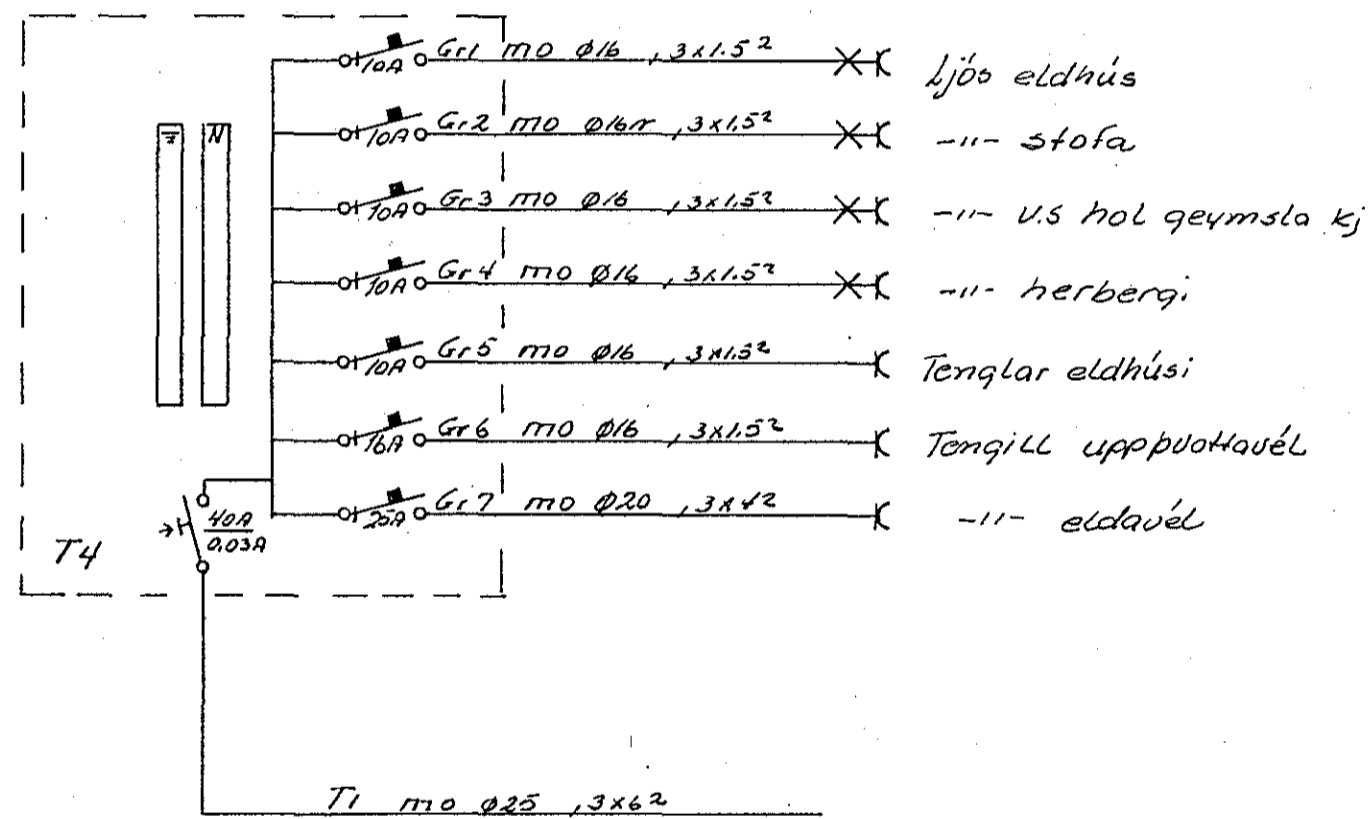 10A Gr1 mo ø16 , 3x1.5² Ljós eldhús
10A Gr2 mo ø16r , 3x1.5² -"- stofa
N
10A Gr3 mo ø16 , 3x1.5² -"- v.s hol geymsla kj
10A Gr4 mo ø16 , 3x1.5² -"- herbergi
10A Gr5 mo ø16 , 3x1.5² Tenglar eldhúsi
16A Gr6 mo ø16 , 3x1.5² Tengill uppþvottavél
25A Gr7 mo ø20 , 3x4² -"- eldavél
40A
0.03A
T4
T1 mo ø25 , 3x6²